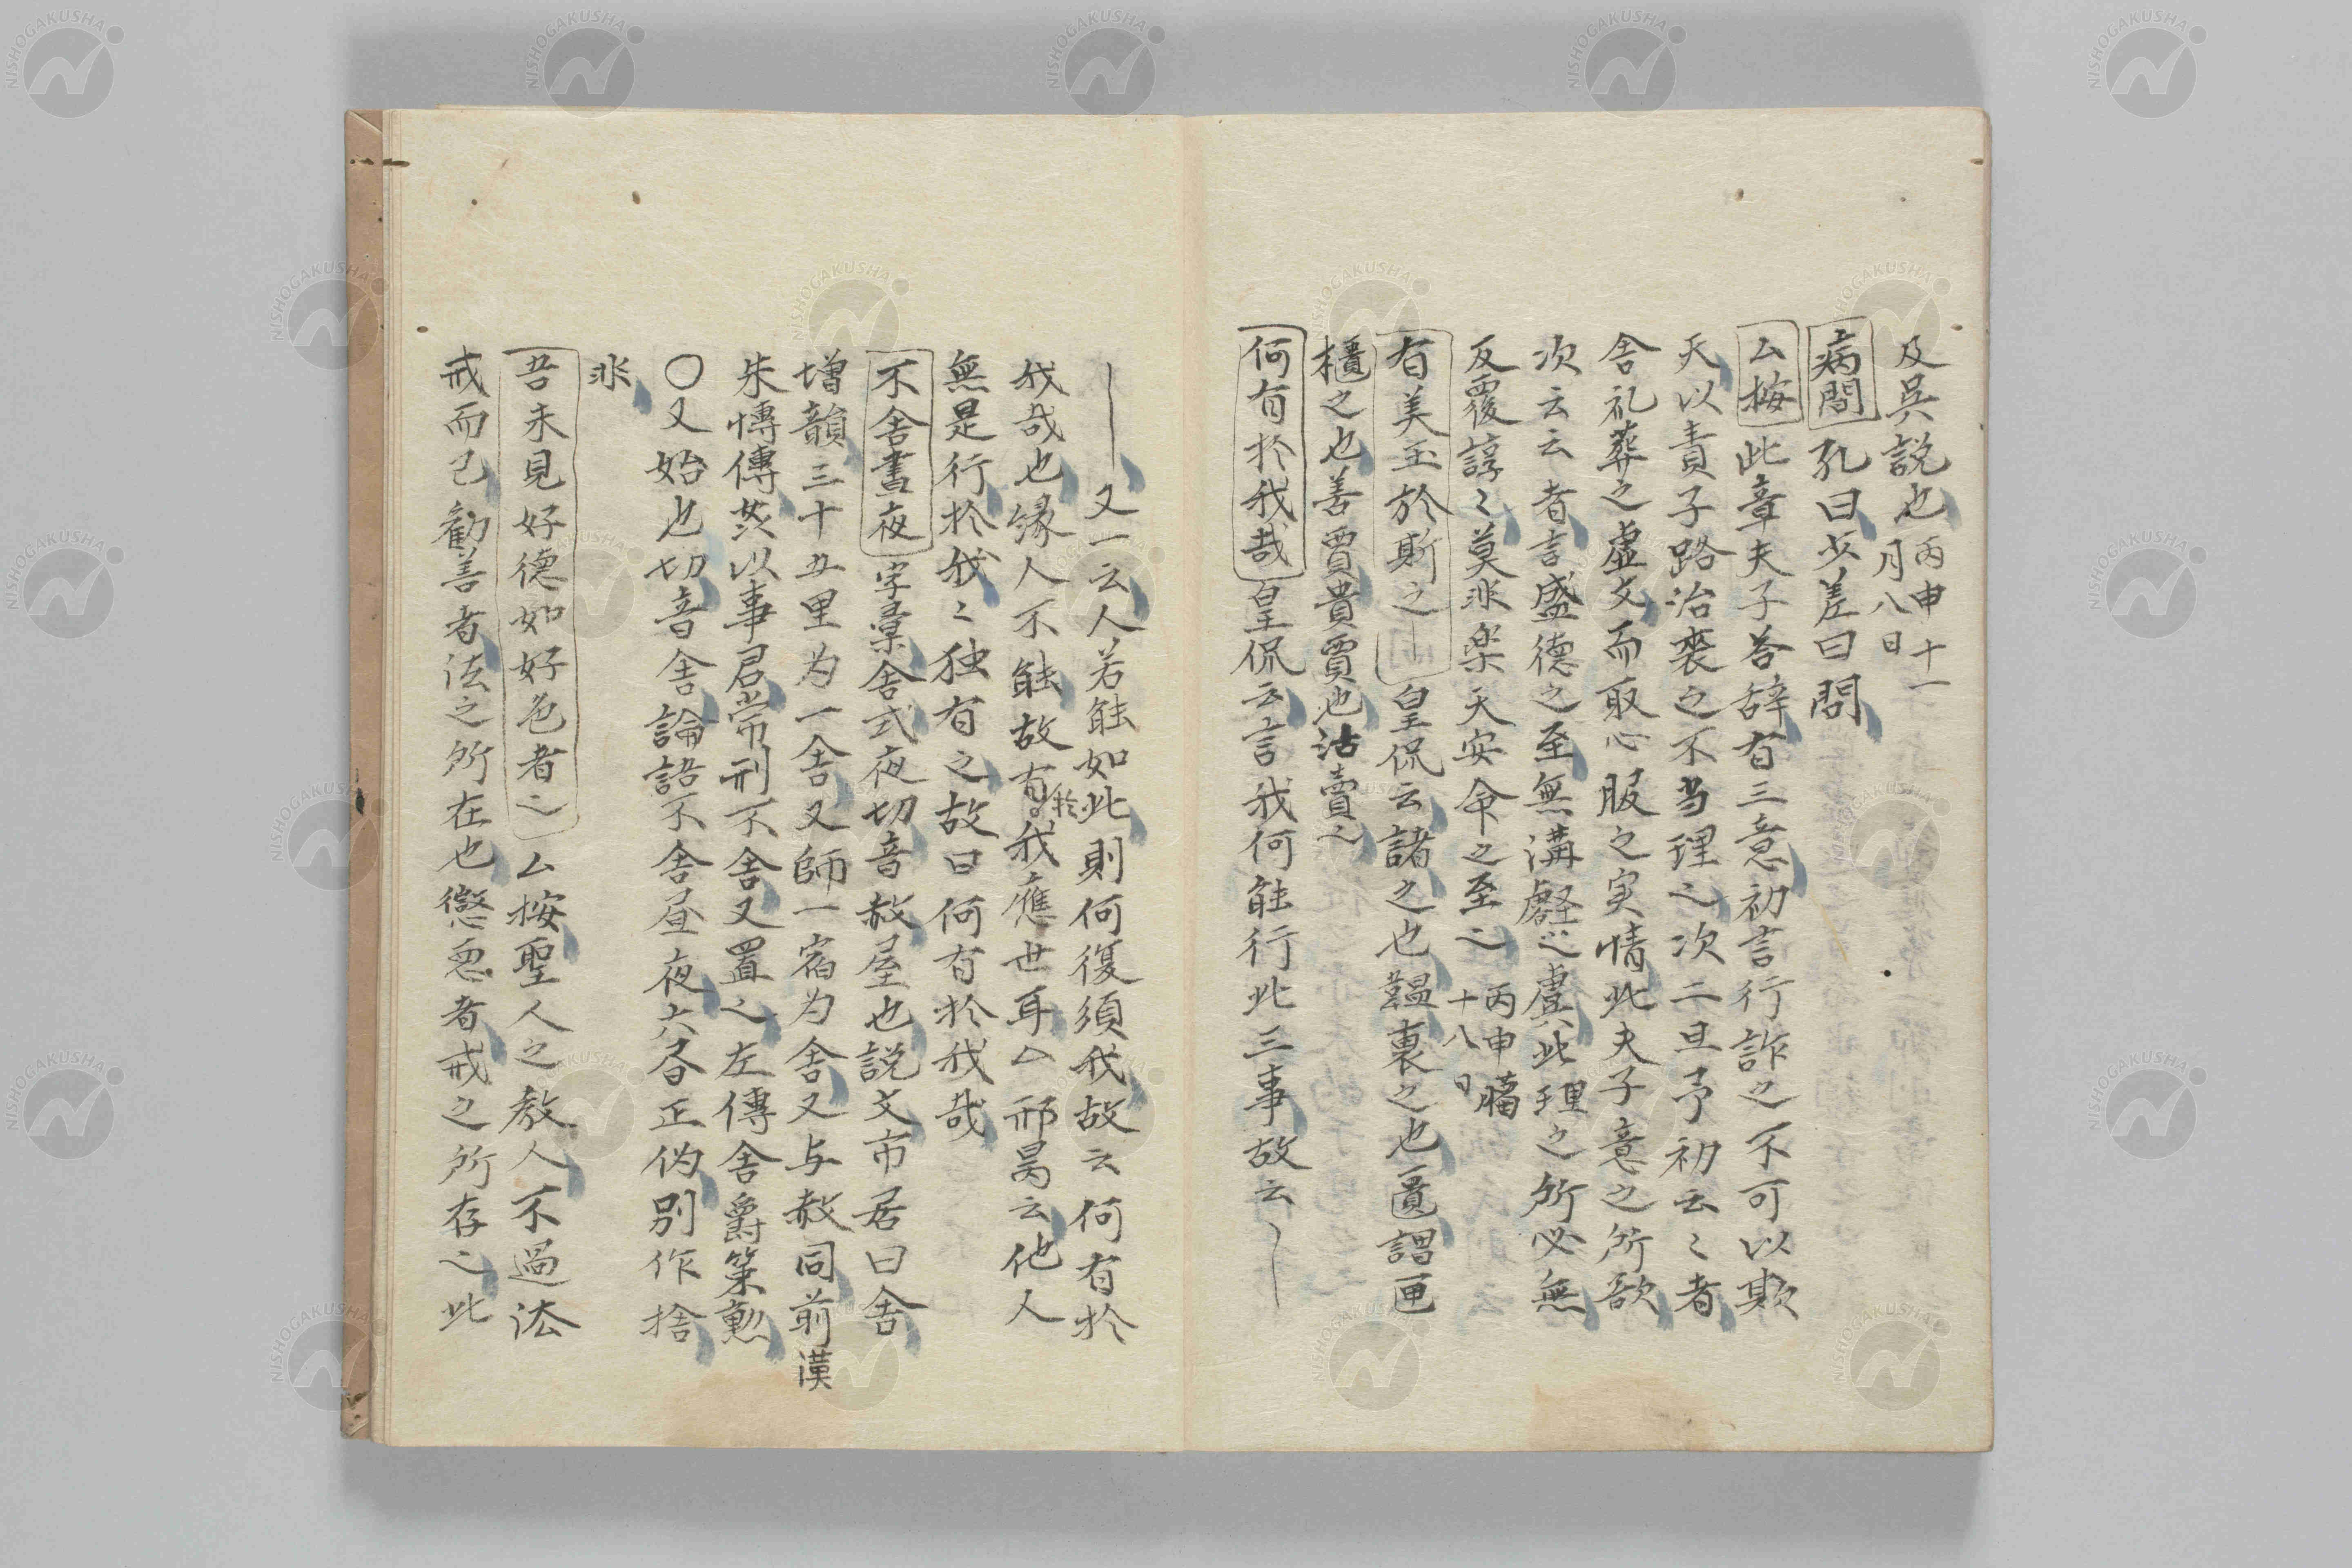 及呉説也 丙申十一月八日
病間 孔曰少差曰間
厶按 此章夫子答辞有三意初言行詐之不可以欺
天以責子路治喪之不当理之次二旦予初云々者
舍礼葬之虚文而取心服之実情此夫子意之所欲
次云云者言盛德之至無溝壑之虞此理之所必無
反覆諄々莫非楽天安命之至之 丙申臈十八日
有美玉於斯之｜ 皇侃云諸之也韞裏之也匱謂匣
櫃之也善賈貴賈也沽賣之
何有於我哉 皇侃云言我何能行此三事故云｜
｜又一云人若能如此則何復須我故云何有於
我哉也縁人不能故有於我應世耳厶邢昺云他人
無是行於我々独有之故曰何有於我哉
不舍晝夜 字彙舍式夜切音赦屋也説文市居曰舍
増韻三十五里为一舍又師一宿为舍又与赦同前漢
朱博傳 以事君常刑不舍又置之左傳舍爵策勲
〇又始也切音舍論語不舍昼夜六各正偽別作捨
非
吾未見好德如好色者之 厶按聖人之教人不過法
戒而已勧善者法之所在也懲惡者戒之所存之此
NISHOGAKUSHA